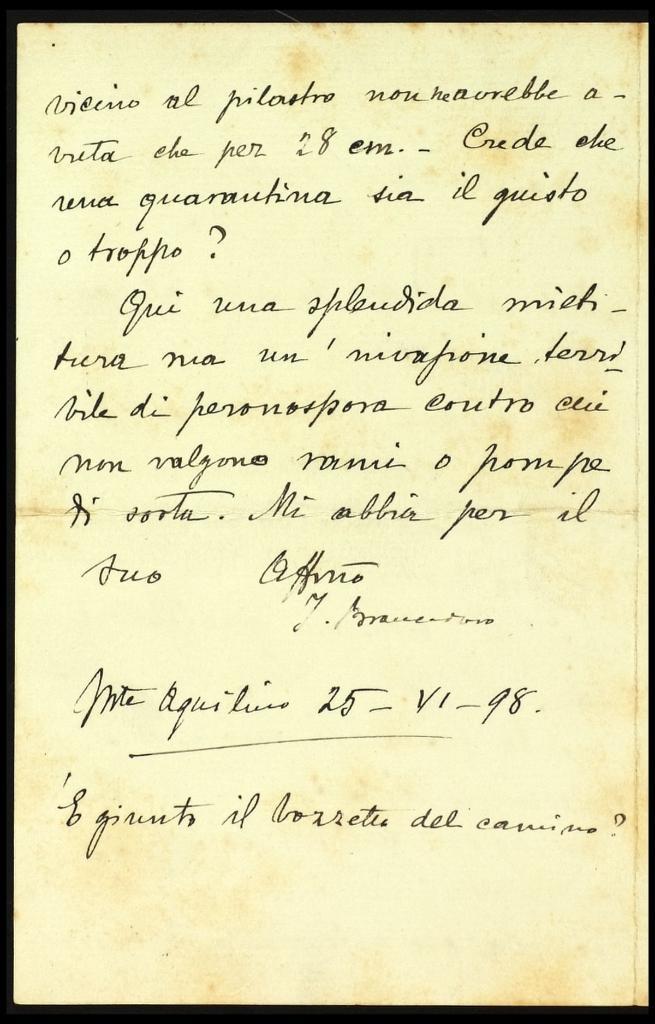 vicino al pilastro non ne avrebbe a-
vuta che per 28 cm. - Crede che
una quarantina sia il giusto
o troppo?
Qui una splendida mieti-
tura ma un' invasione terri-
bile di peronospora contro cui
non valgono rami o pompe
di sorta. Mi abbia per il
suo Affmo
Mte Aquilino 25 - VI - 98.
È giunto il bozzetto del camino?